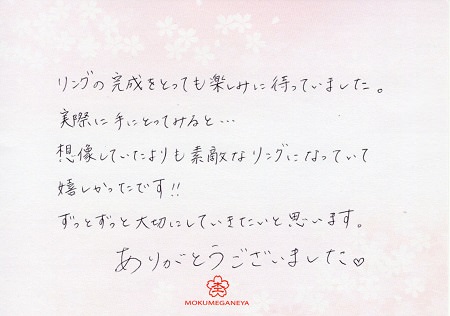 リングの完成をとっても楽しみに待っていました。
実際に手にとってみると…
想像していたよりも素敵なリングになっていて
嬉しかったです!!
ずっとずっと大切にしていきたいと思います。
ありがとうございました♡
MOKUMEGANEYA